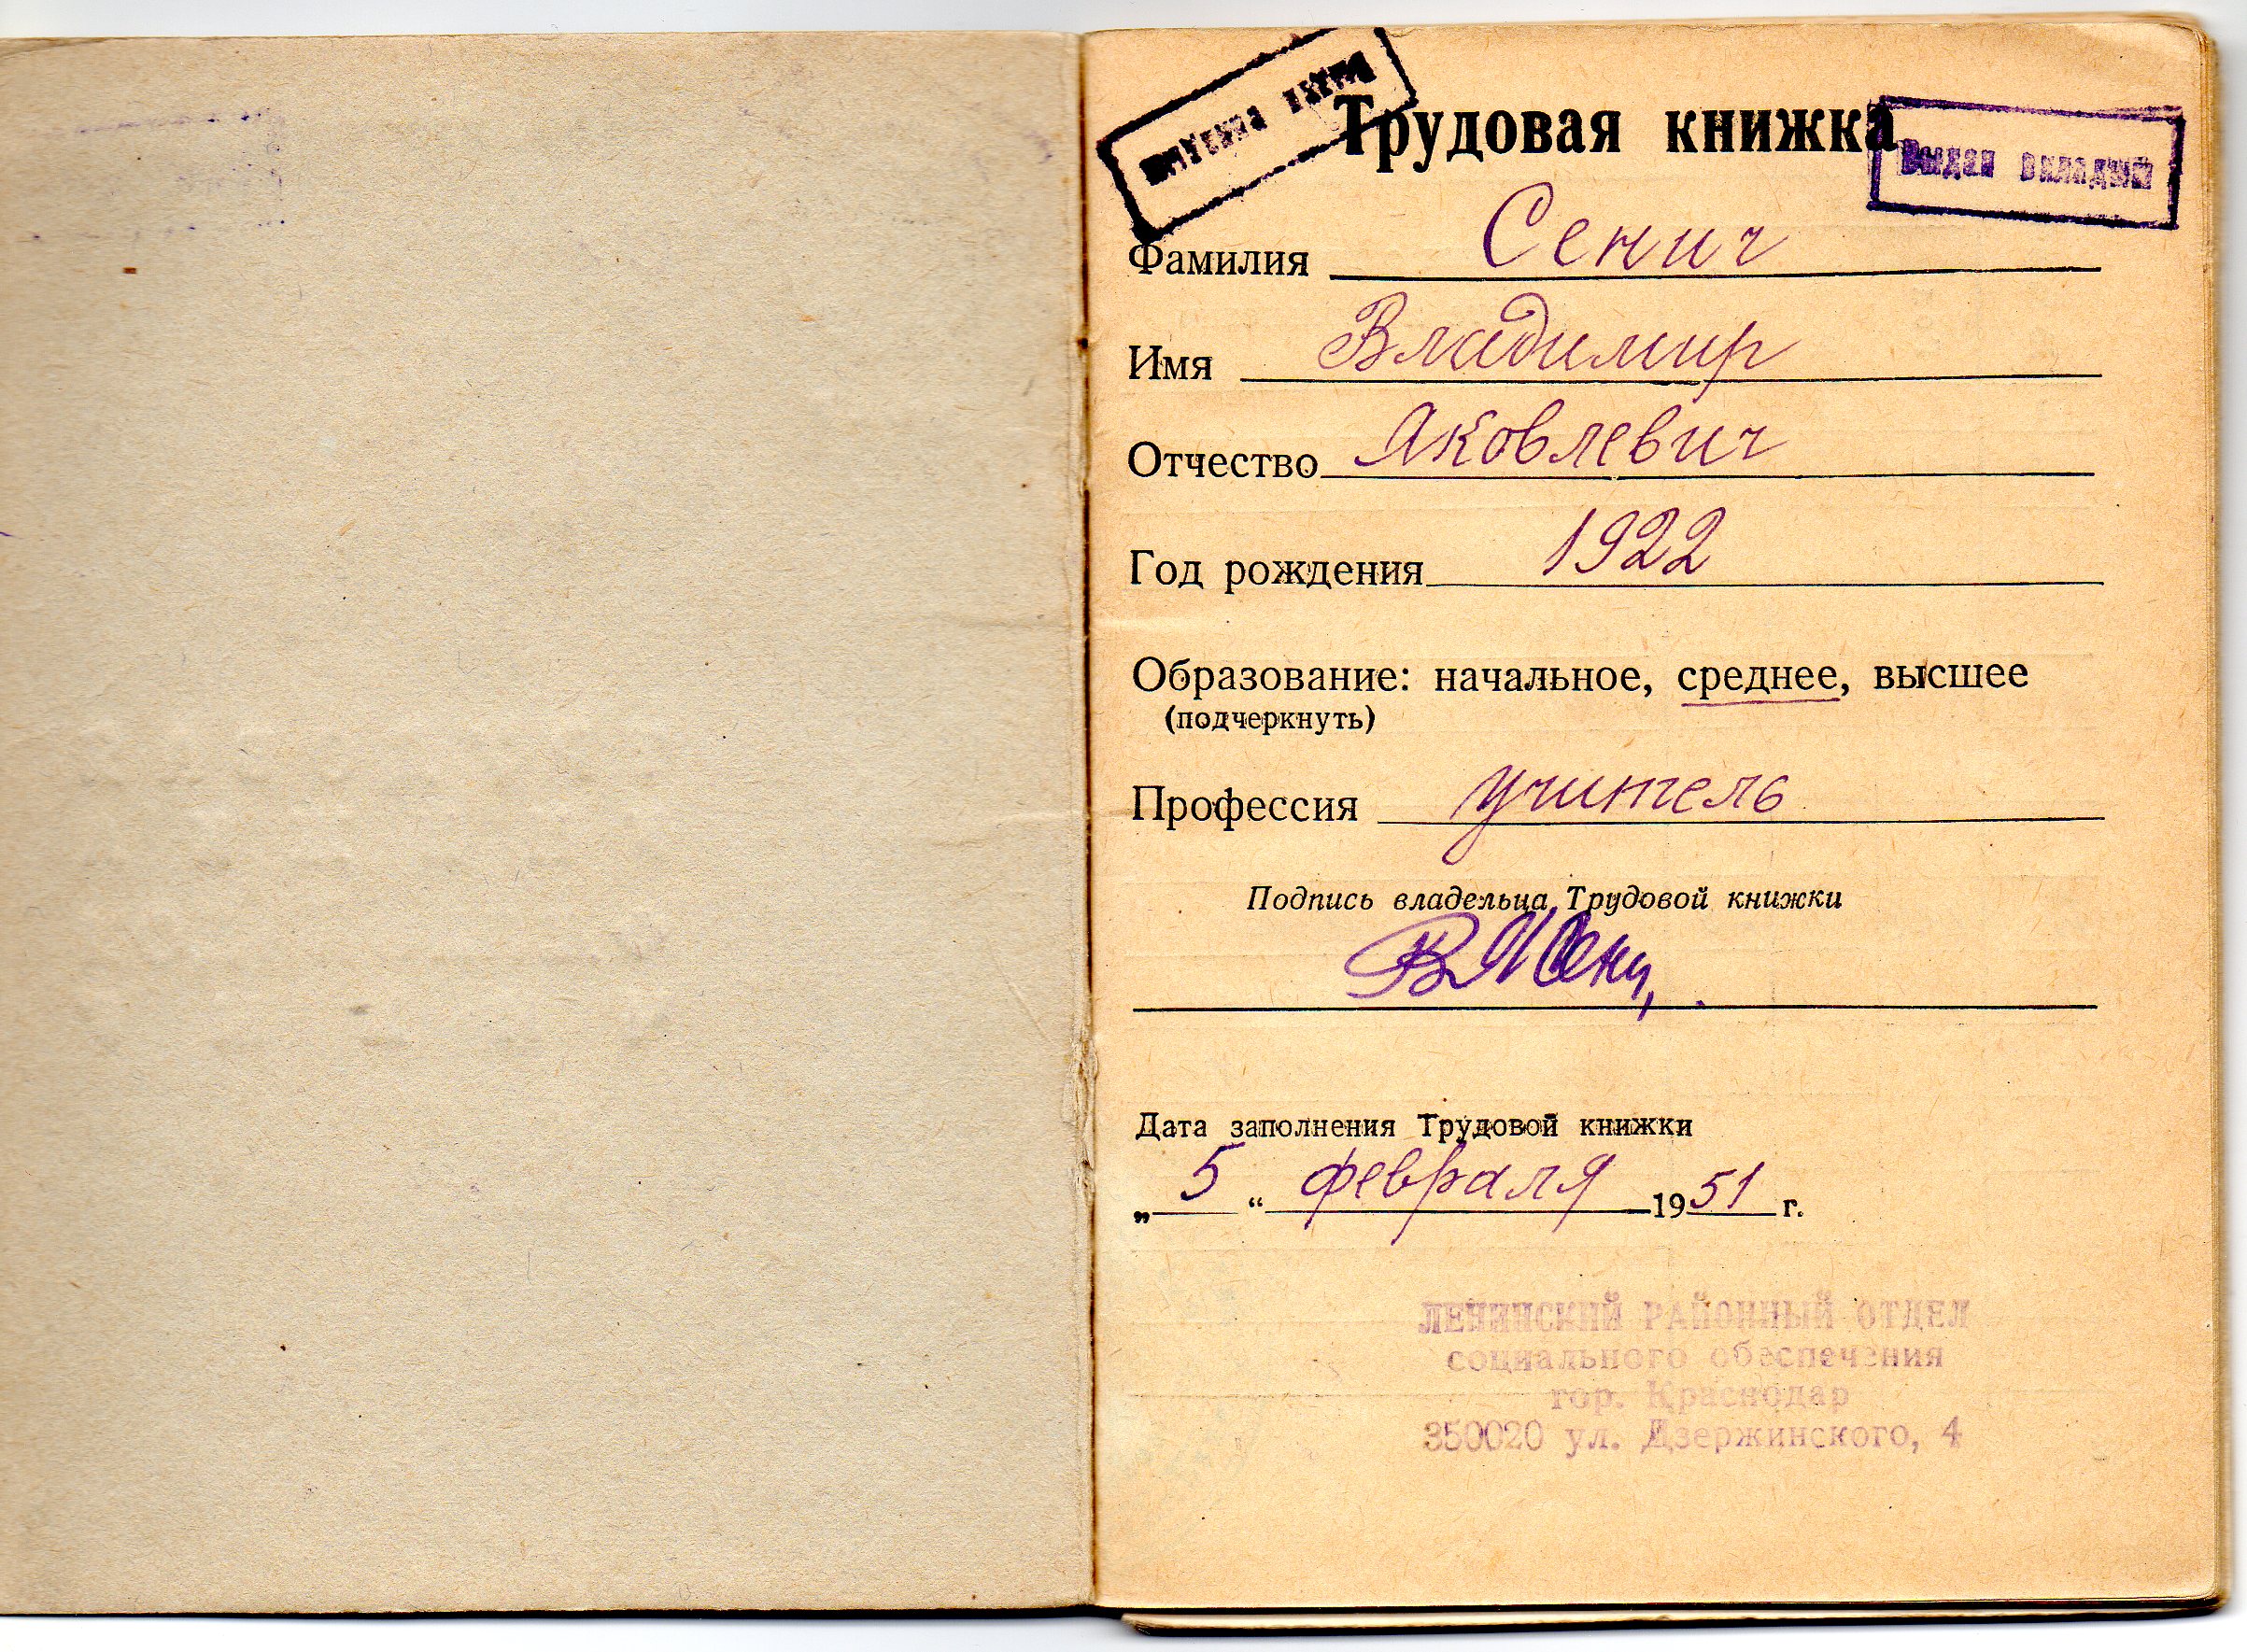 Трудовая книжка
Выдан вкладыш
Фамилия Сенич
Имя Владимир
Отчество Яковлевич
Год рождения 1922
Образование: начальное, среднее, высшее
(подчеркнуть)
Профессия учитель
Подпись владельца Трудовой книжки
Дата заполнения Трудовой книжки
„5“ февраля 1951 г.
ЛЕНИНСКИЙ РАЙОННЫЙ ОТДЕЛ
социального обеспечения
гор. Краснодар
350020 ул. Дзержинского, 4